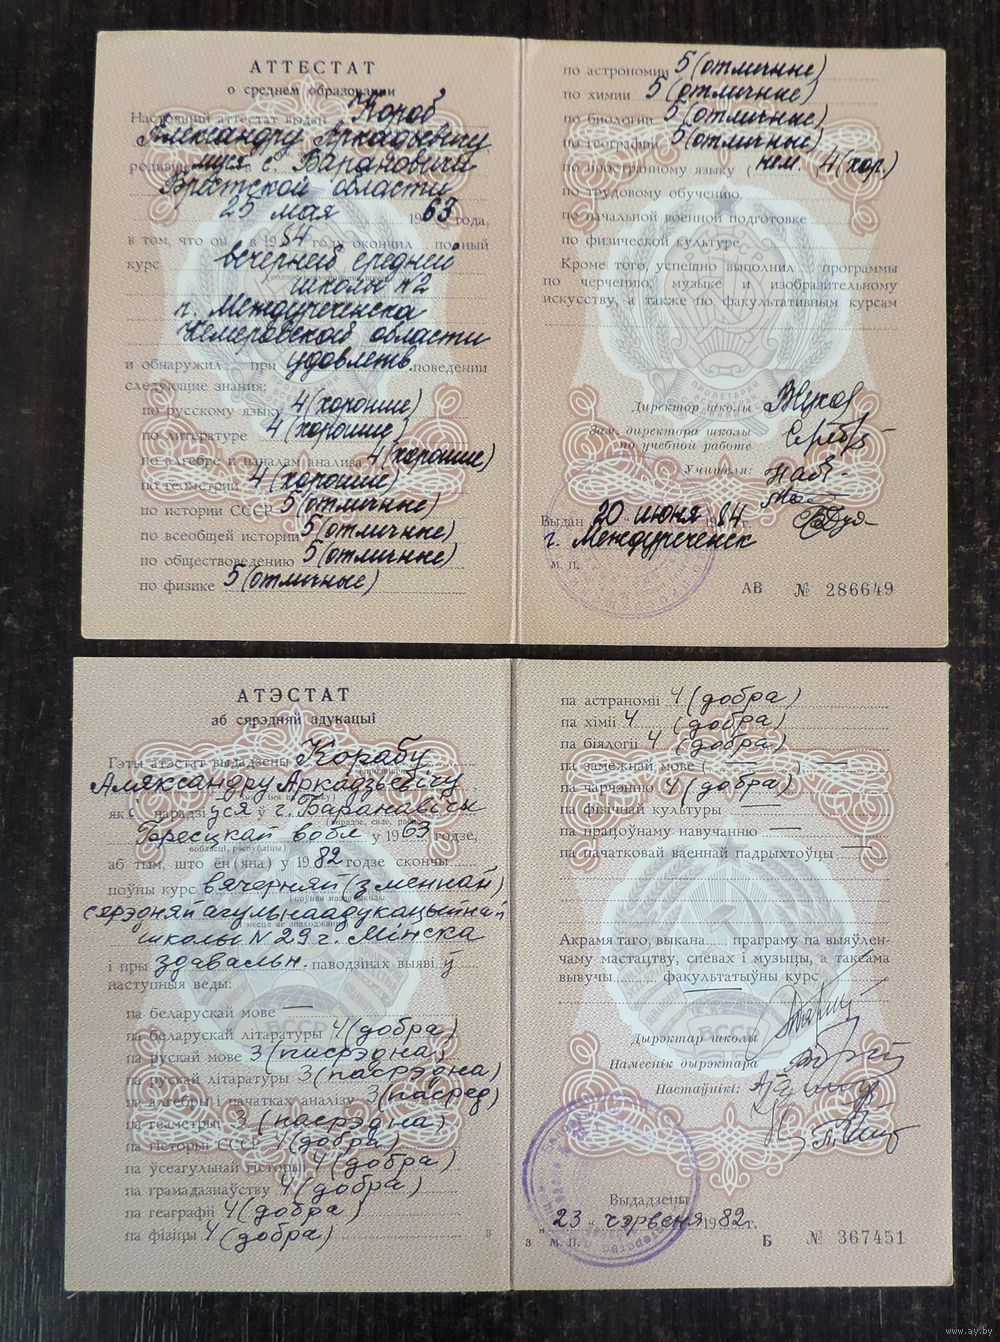 АТТЕСТАТ
о среднем образовании
Настоящий аттестат выдан Короб
Александру Аркадьевичу
родивш ся в г. Барановичи
Брестской области
25 мая 1963 года,
в том, что он в 1984 году окончил полный
курс вечерней средней
школы №2
г. Междуреченска
Кемеровской области
и обнаружил при удовлетв. поведении
следующие знания:
по русскому языку 4 (хорошие)
по литературе 4 (хорошие)
по алгебре и началам анализа 4 (хорошие)
по геометрии 4 (хорошие)
по истории СССР 5 (отличные)
по всеобщей истории 5 (отличные)
по обществоведению 5 (отличные)
по физике 5 (отличные)
по астрономии 5 (отличные)
по химии 5 (отличные)
по биологии 5 (отличные)
по географии 5 (отличные)
по иностранному языку ( нем. 4 (хор.)
по трудовому обучению
по начальной военной подготовке
по физической культуре
Кроме того, успешно выполнил программы
по черчению, музыке и изобразительному
искусству, а также по факультативным курсам
РСФСР
Директор школы
Зам. директора школы
по учебной работе
Учителя:
Выдан 20 июня 1984 г.
г. Междуреченск
М. П.
АВ № 286649
АТЭСТАТ
аб сярэдняй адукацыі
Гэты атэстат выдадзены Корабу
Аляксандру Аркадзьевічу
які нарадзіўся ў г. Баранавічы
Брэсцкай вобл у 1963 годзе,
аб тым, што ён(яна) у 1982 годзе скончы
поўны курс вячэрняй (зменнай)
сярэдняй агульнаадукацыйнай
школы N 29 г. Мінска
і пры здавальн. паводзінах выявіў
наступныя веды:
па беларускай мове —
па беларускай літаратуры 4 (добра)
па рускай мове 3 (пасрэдна)
па рускай літаратуры 3 (пасрэдна)
па алгебры і пачатках аналізу 3 (пасрэд)
па геаметрыі 3 (пасрэдна)
па гісторыі СССР 4 (добра)
па ўсеагульнай гісторыі 4 (добра)
па грамадазнаўству 4 (добра)
па геаграфіі 4 (добра)
па фізіцы 4 (добра)
з
па астраноміі 4 (добра)
па хіміі 4 (добра)
па біялогіі 4 (добра)
па замежнай мове ( —
па чарчэнню 4 (добра)
па фізічнай культуры —
па працоўнаму навучанню —
па пачатковай ваеннай падрыхтоўцы —
Акрамя таго, выкана праграму па выяўлен-
чаму мастацтву, спевах і музыцы, а таксама
вывучы факультатыўны курс
—
БССР
Дырэктар школы
Намеснік дырэктара
Настаўнікі:
Выдадзены
„23" чэрвеня 1982 г.
з М. П.
Б № 367451
www.ay.by